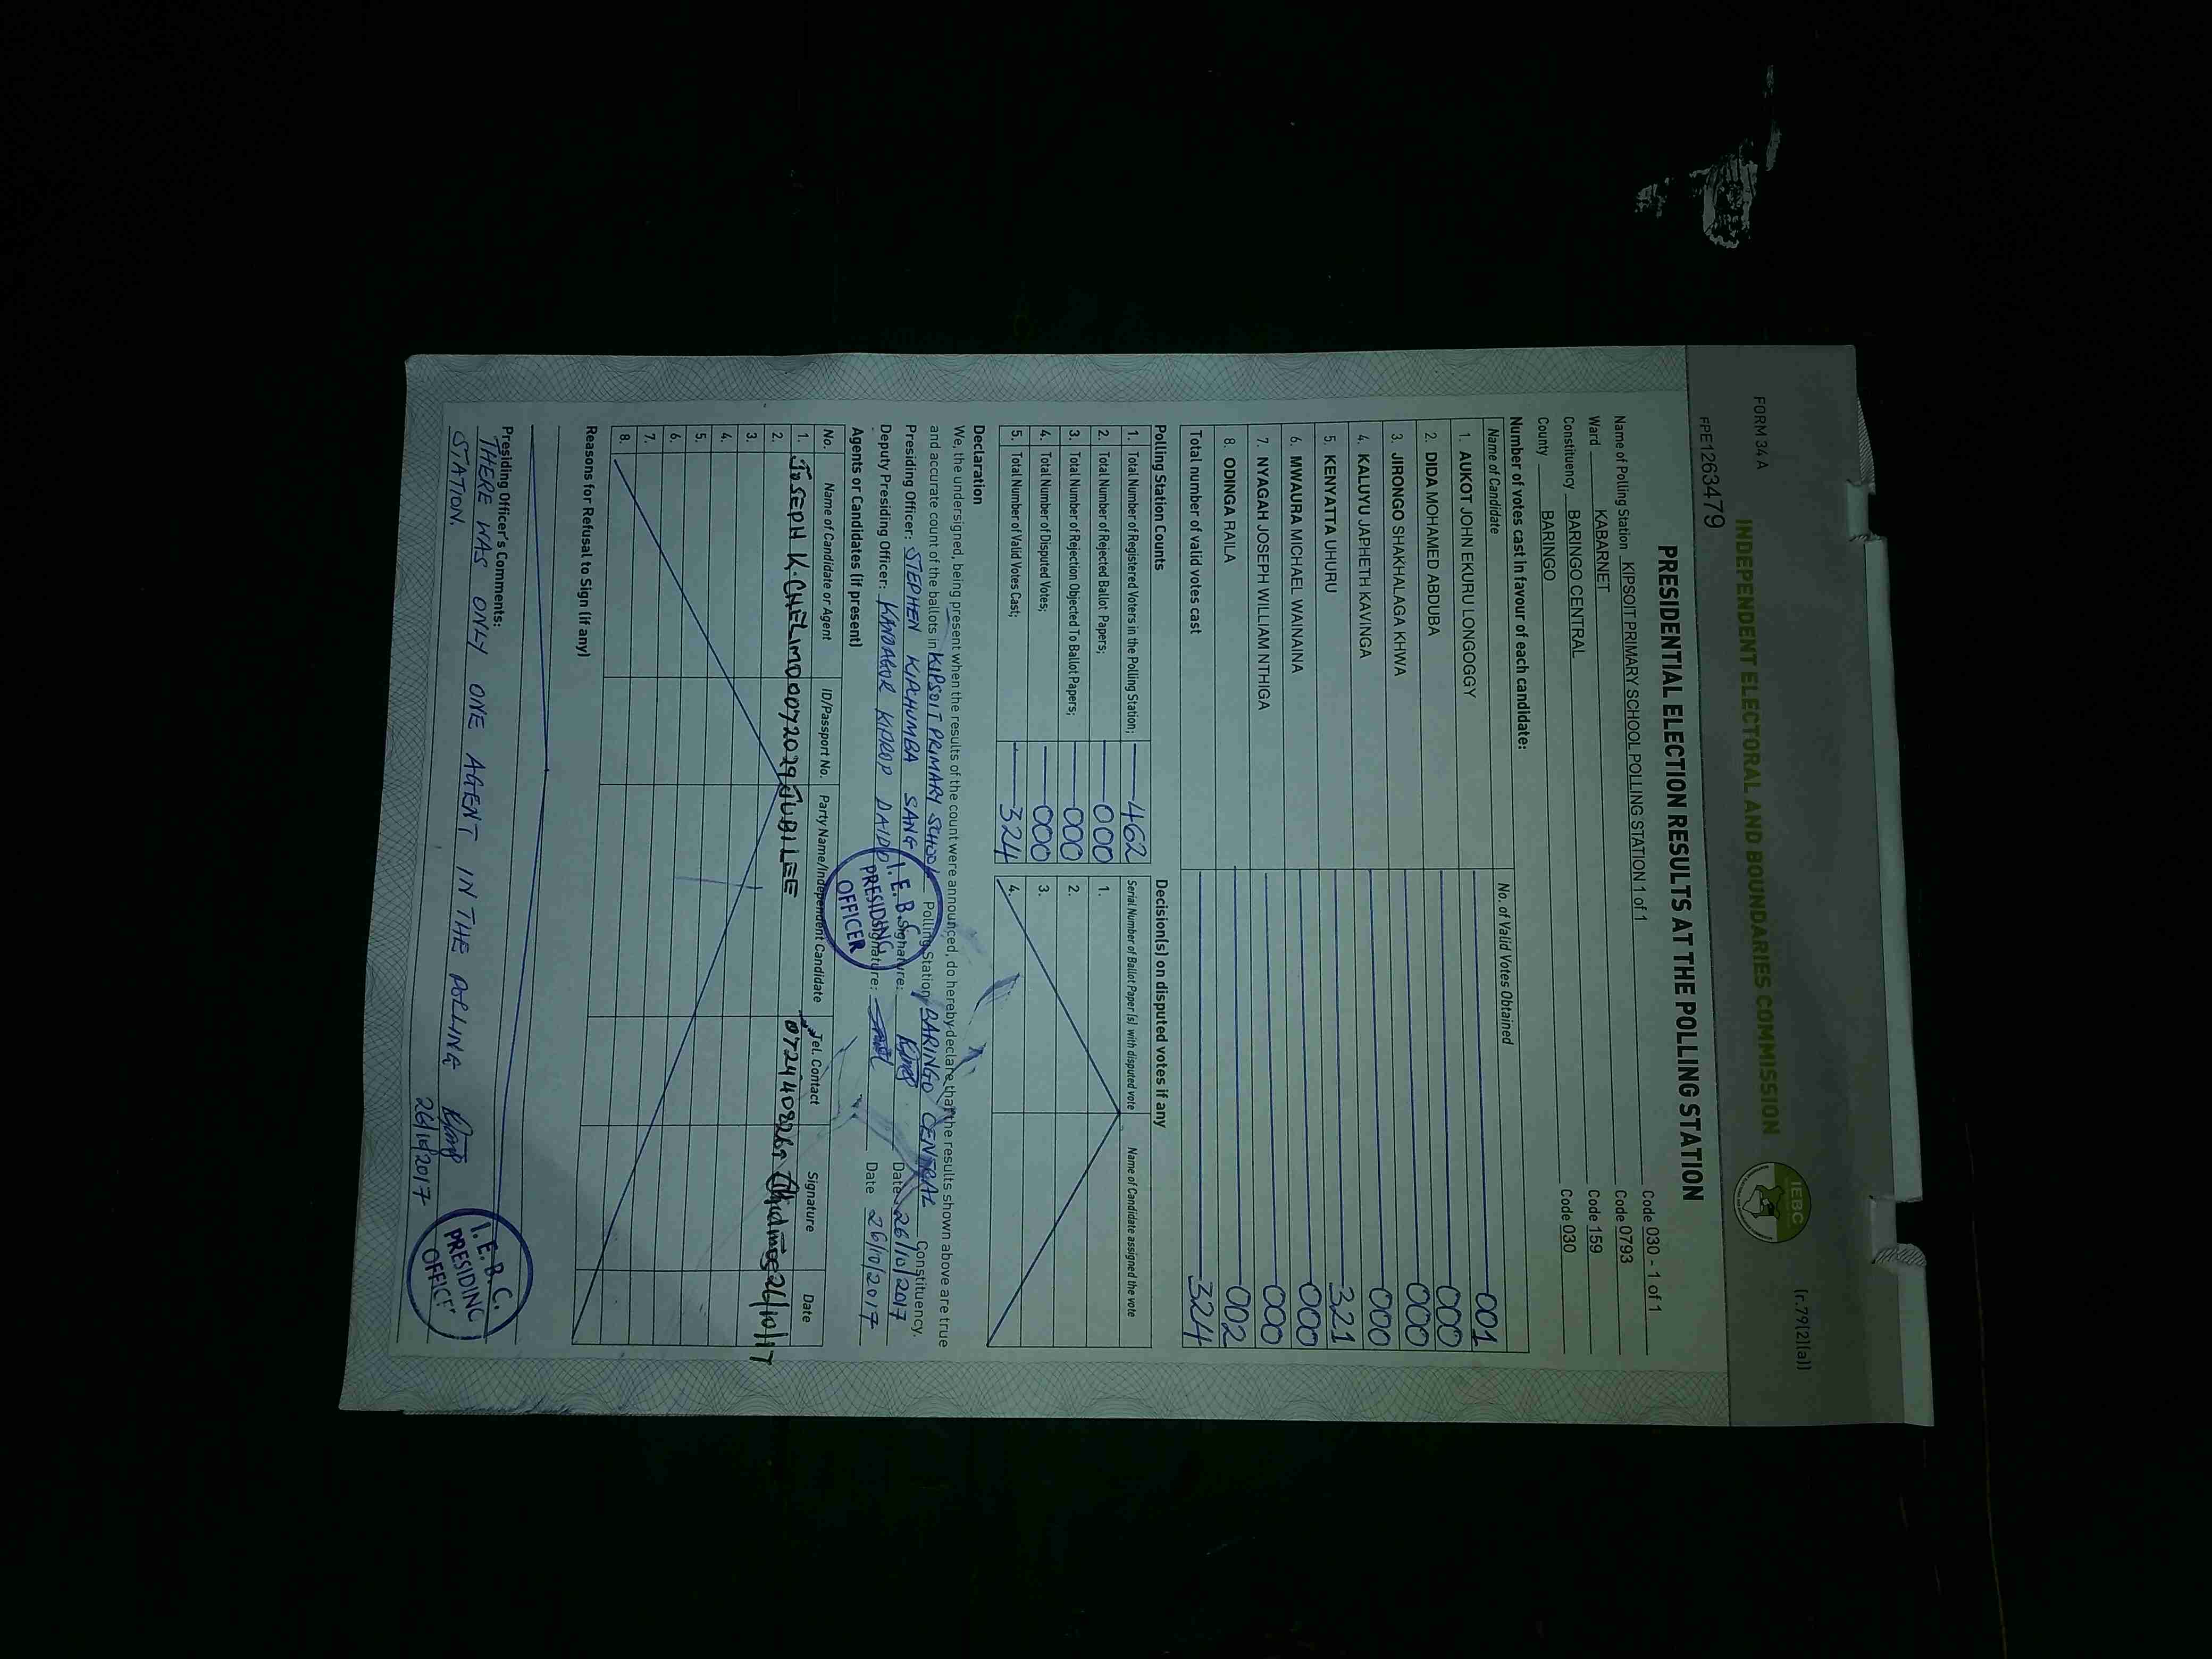 FORM 34 A
(r.79(2)(a))
INDEPENDENT ELECTORAL AND BOUNDARIES COMMISSION
IEBC
FPE1263479
PRESIDENTIAL ELECTION RESULTS AT THE POLLING STATION
Name of Polling Station KIPSOIT PRIMARY SCHOOL POLLING STATION 1 of 1 Code 030 - 1 of 1
Code 0793
Ward KABARNET Code 159
Constituency BARINGO CENTRAL Code 030
County BARINGO
Number of votes cast in favour of each candidate:
Name of Candidate No. of Valid Votes Obtained
1. AUKOT JOHN EKURU LONGOGGY 001
2. DIDA MOHAMED ABDUBA 000
3. JIRONGO SHAKHALAGA KHWA 000
4. KALUYU JAPHETH KAVINGA 000
5. KENYATTA UHURU 321
6. MWAURA MICHAEL WAINAINA 000
7. NYAGAH JOSEPH WILLIAM NTHIGA 000
8. ODINGA RAILA 002
Total number of valid votes cast 324
Polling Station Counts
1. Total Number of Registered Voters in the Polling Station; 462
2. Total Number of Rejected Ballot Papers; 000
3. Total Number of Rejection Objected To Ballot Papers; 000
4. Total Number of Disputed Votes; 000
5. Total Number of Valid Votes Cast; 324
Decision(s) on disputed votes if any
Serial Number of Ballot Paper(s) with disputed vote Name of Candidate assigned the vote
1.
2.
3.
4.
Declaration
We, the undersigned, being present when the results of the count were announced, do hereby declare that the results shown above are true
and accurate count of the ballots in KIPSOIT PRIMARY SCHOOL Polling Station BARINGO CENTRAL Constituency.
Presiding Officer: STEPHEN KIPCHUMBA SANG Signature: Date 26/10/2017
Deputy Presiding Officer: KANDAGOR KIPROP DAVID Signature: Date 26/10/2017
I.E.B.C.
PRESIDING
OFFICER
Agents or Candidates (if present)
No. Name of Candidate or Agent ID/Passport No. Party Name/Independent Candidate Tel. Contact Signature Date
1. JOSEPH K. CHELIMO 0072029 JUBILEE 26/10/17
2.
3.
4.
5.
6.
7.
8.
Reasons for Refusal to Sign (if any)
Presiding Officer's Comments:
THERE WAS ONLY ONE AGENT IN THE POLLING
STATION. 26/10/2017
I.E.B.C.
PRESIDING
OFFICE